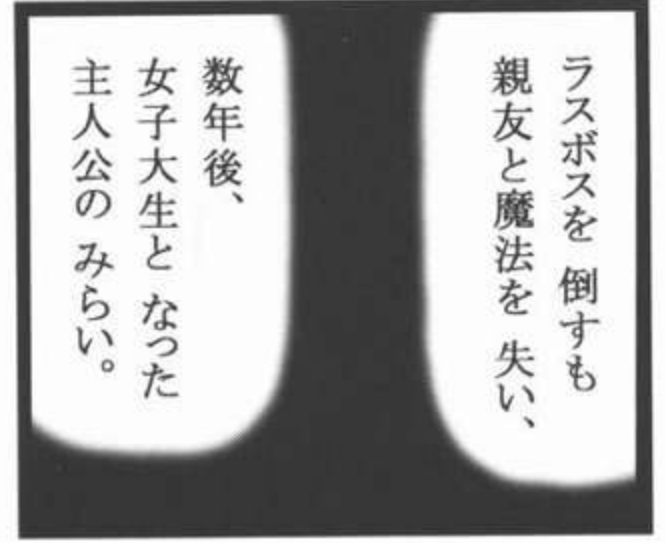 ラスボスを 倒すも
親友と魔法を 失い、
数年後、
女子大生と なった
主人公の みらい。